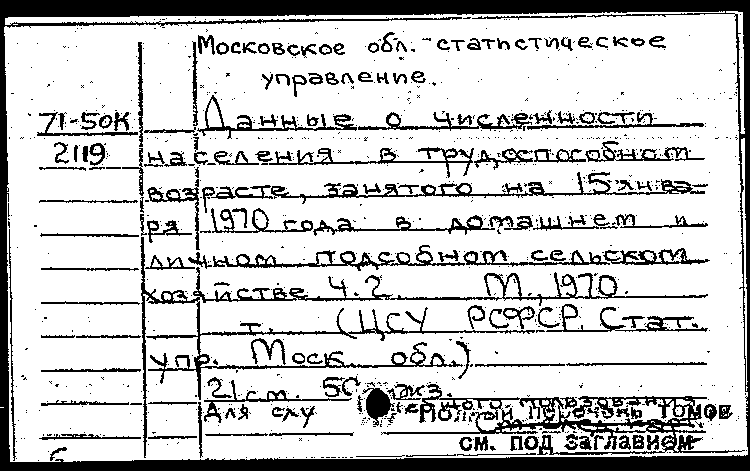 Московское обл. статистическое
управление.
71-50К Данные о численности
2119 населения в трудоспособном
возрасте, занятого на 15 янва-
ря 1970 года в домашнем и
личном подсобном сельском
хозяйстве. Ч. 2. М., 1970.
т. (ЦСУ РСФСР. Стат.
упр. Моск. обл.)
21 см. 50 экз.
Для слу пользования
Полный перечень томов
см. под заглавием